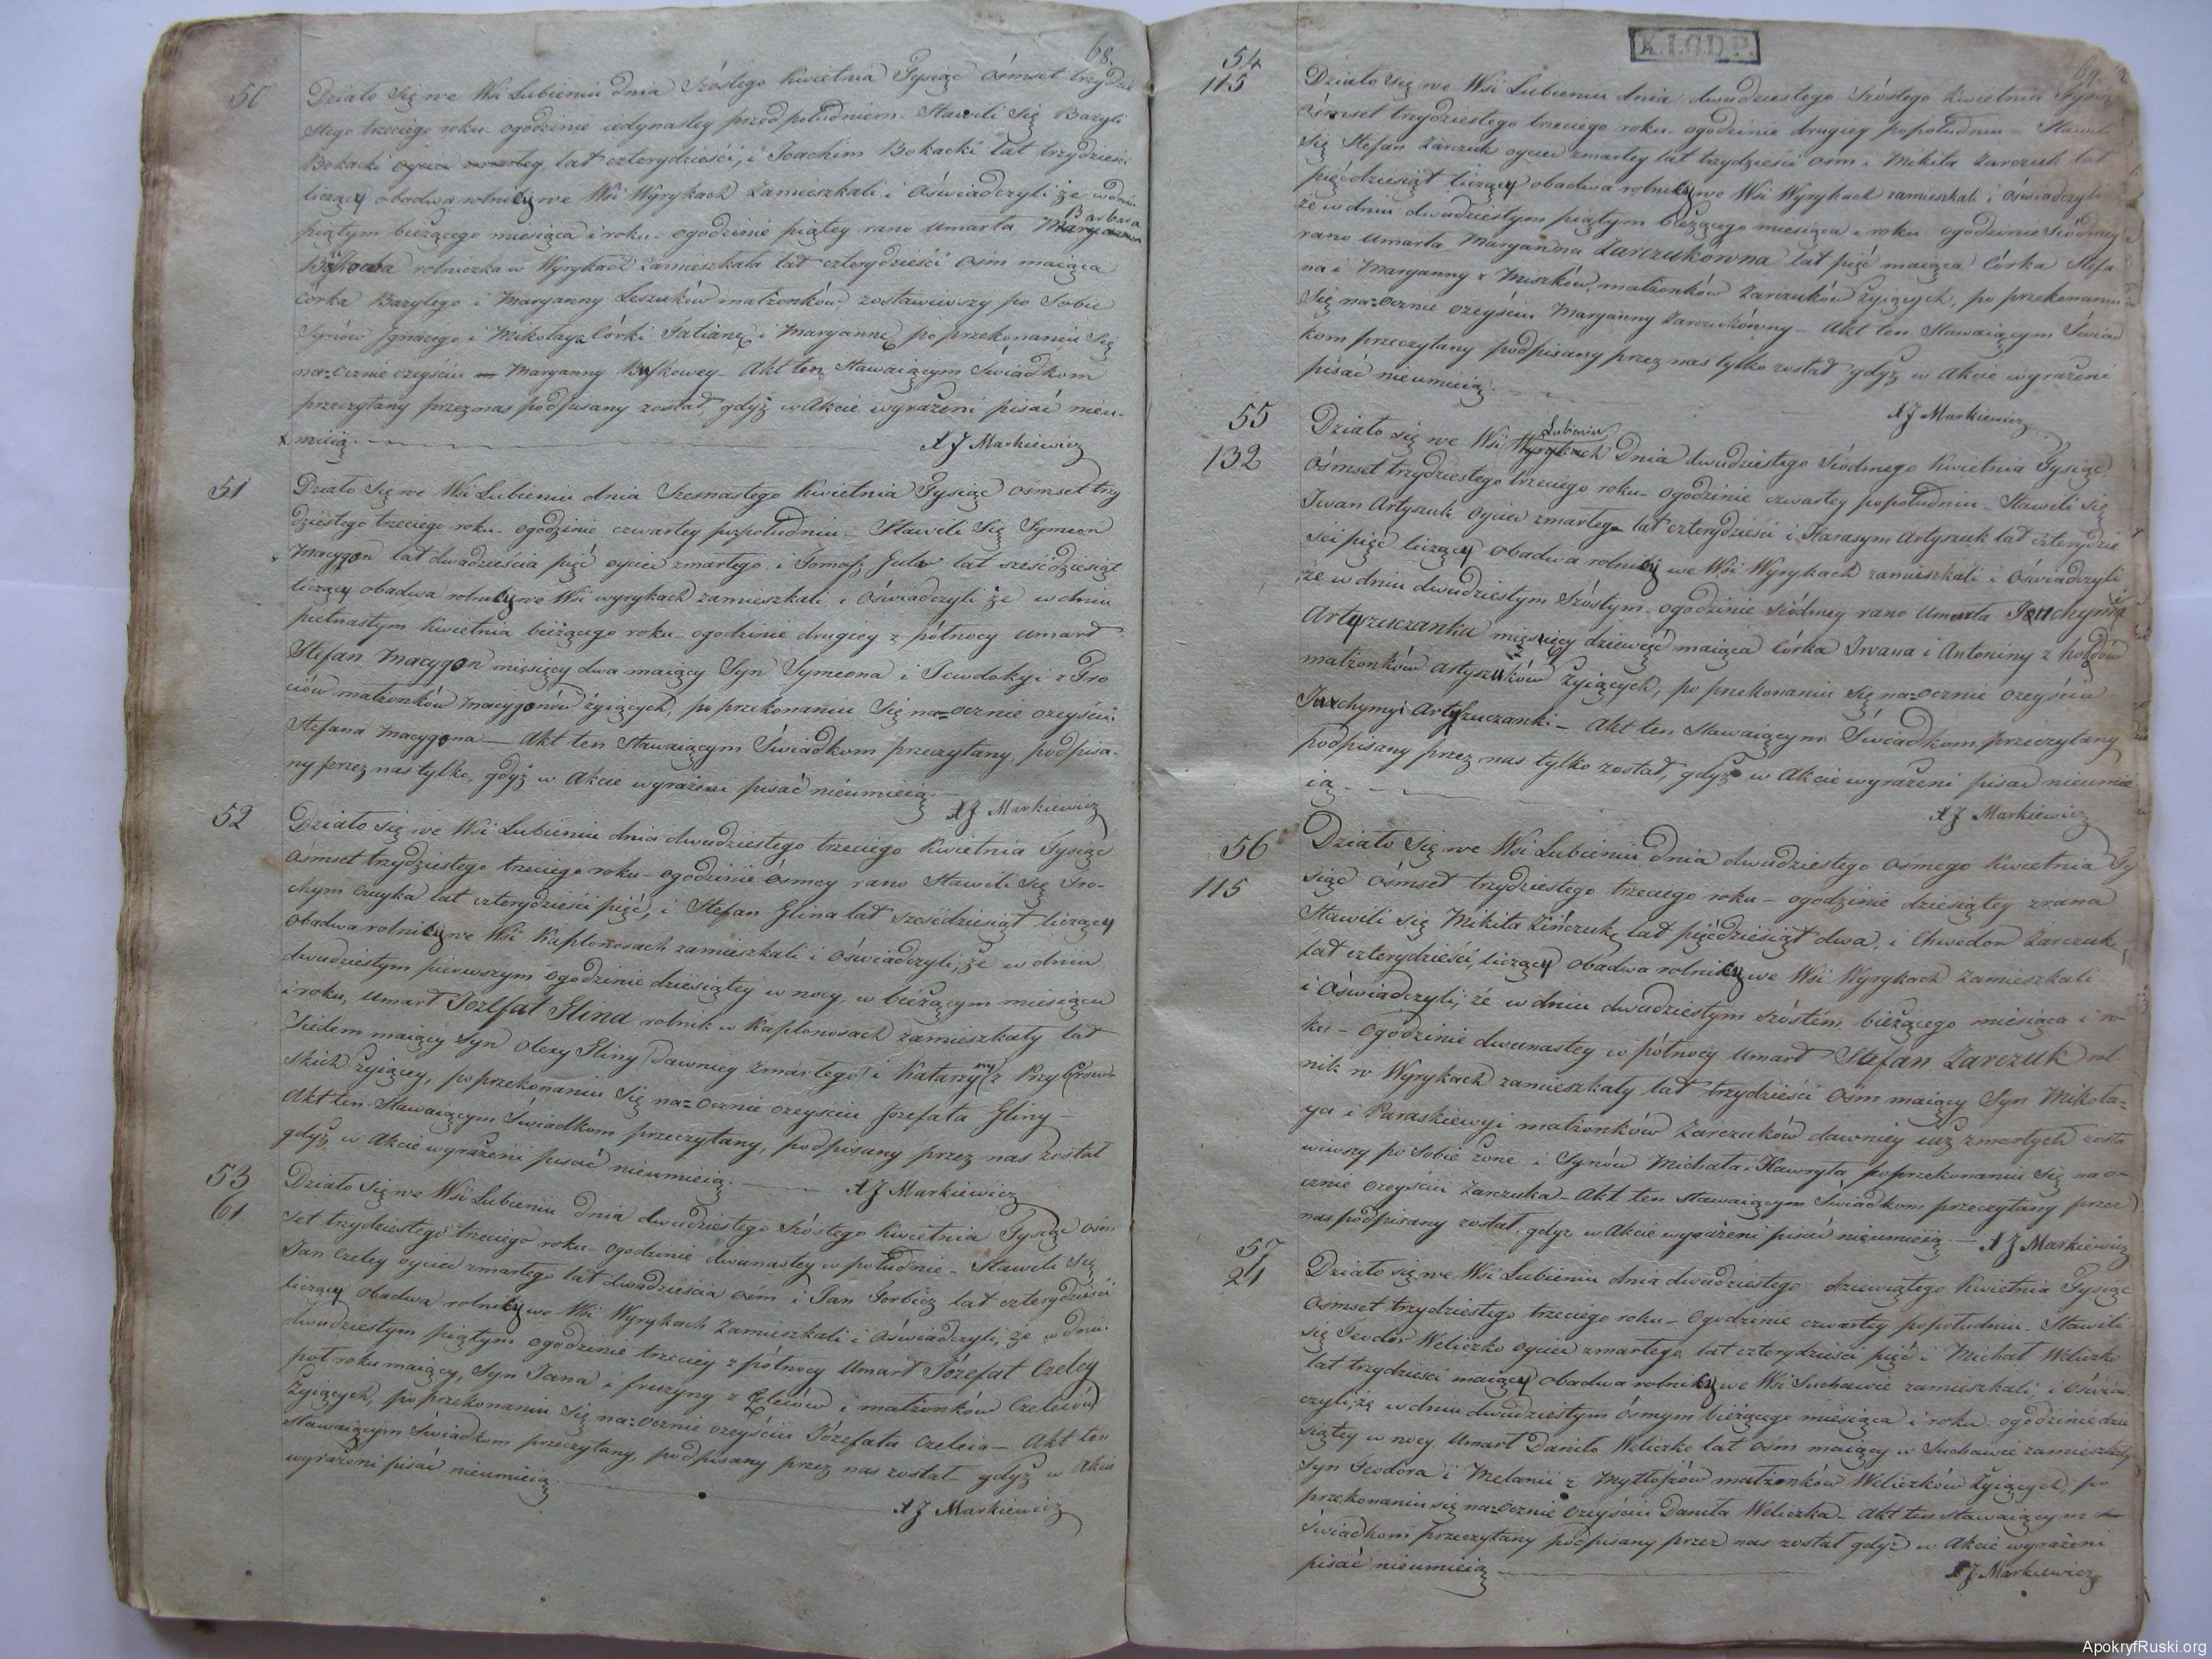 68.
50
Działo się we Wsi Lubieniu dnia szóstego Kwietnia Tysiąc ośmset trzydzie
stego trzeciego roku ogodzinie iedynastey przed południem. Stawili się Bazyli
Bokacki lat czterydzieści, i Joachim Bokacki lat trzydzieści
liczący obadwa rolnicy we Wsi Wyrykach zamieszkali i oświadczyli że wdniu
piątym bieżącego miesiąca i roku ogodzinie piątey rano umarła Barbara
rolniczka w Wyrykach zamieszkała lat czterydzieści ośm maiąca
córka Bazylego i Maryanny Leszuków małżonków, zostawiwszy po sobie
synów Ignacego i Mikołaya córki Tatiannę i Maryannę, po przekonaniu się
na=ocznie ozeyściu Maryanny Byśkowey – Akt ten stawaiącym świadkom
przeczytany przez nas podpisany został, gdyż w Akcie wyrażeni pisać nieu-
mieią.
XJ Markiewicz
51
Działo się we Wsi Lubieniu dnia szesnastego Kwietnia Tysiąc ośmset trzy
dziestego trzeciego roku ogodzinie czwartey popołudniu – Stawili się Symeon
Macygon lat dwadzieścia pięć oyciec zmarłego, i Tomasz lat sześćdziesiąt
liczący obadwa rolnicy we Wsi wyrykach zamieszkali, i oświadczyli że w dniu
pietnastym Kwietnia bieżącego roku ogodzinie drugiey z północy umarł
Stefan Macygon miesięcy dwa maiący syn Symeona i Jewdokyi z Gro
ciów małżonków Macygonów żyiących, po przekonaniu się na=ocznie ozeyściu
Stefana Macygona — Akt ten stawaiącym świadkom przeczytany, podpisa-
ny przez nas tylko, gdyż w Akcie wyrażeni pisać nieumieią.
XJ Markiewicz
52
Działo się we Wsi Lubieniu dnia dwudziestego trzeciego Kwietnia Tysiąc
ośmset trzydziestego trzeciego roku – ogodzinie ósmey rano Stawili się Tro-
chym Czuyka lat czterydzieści pięć, i Stefan Glina lat sześćdziesiąt liczący
obadwa rolnicy we Wsi Kaplonosach zamieszkali i oświadczyli, że w dniu
dwudziestym pierwszym ogodzinie dziesiątey w nocy, w bieżącym miesiącu
i roku, umarł Jozefat Glina rolnik w Kaplonosach zamieszkały lat
siedem maiący syn Olexy Gliny dawniey zmarłego i Katarzyny z Przybrow-
skich żyiącey, po przekonaniu się na=ocznie ozeyściu Jozefata Gliny –
Akt ten stawaiącym świadkom przeczytany, podpisany przez nas został
gdyż w Akcie wyrażeni pisać nieumieią.
XJ Markiewicz
53
61
Działo się we Wsi Lubieniu dnia dwudziestego szóstego Kwietnia Tysiąc ośm
set trzydziestego trzeciego roku – ogodzinie dwunastey w południe – Stawili się
Jan Czeley oyciec zmarłego lat dwadzieścia ośm i Jan Gorbicz lat czterydzieści
liczący obadwa rolnicy we Wsi Wyrykach zamieszkali i oświadczyli, że w dniu
dwudziestym piątym ogodzinie trzeciey z północy umarł Józefat Czeley
pół roku maiący, syn Jana i fruzyny z małżonków Czeleiów
żyiących, po przekonaniu się na=ocznie ozeyściu Józefata Czeleia – Akt ten
stawaiącym świadkom przeczytany, podpisany przez nas został – gdyż w Akcie
wyrażeni pisać nieumieią.
XJ Markiewicz
K.I.G.D.P.
69.
54
115
Działo się we Wsi Lubieniu dnia dwudziestego szóstego Kwietnia Tysiąc
ośmset trzydziestego trzeciego roku – ogodzinie drugiey popołudniu – Stawili
się Stefan Zarczuk oyciec zmarłey lat trzydzieści ośm i Mikita Zarczuk lat
pięćdziesiąt liczący obadwa rolnicy we Wsi Wyrykach zamieszkali i oświadczyli
że w dniu dwudziestym piątym bieżącego miesiąca i roku ogodzinie siódmey
rano umarła Maryanna Zarczukowna lat pięć maiąca córka Stefa
na i Maryanny z Muszków, małżonków Zarczuków żyiących, po przekonaniu
się na=ocznie ozeyściu Maryanny Zarczukówny – Akt ten stawaiącym świad
kom przeczytany podpisany przez nas tylko został gdyż w Akcie wyrażeni
pisać nieumieią.
XJ Markiewicz
55
132
Działo się we Wsi Wyrykach Lubieniu dnia dwudziestego siódmego Kwietnia Tysiąc
ośmset trzydziestego trzeciego roku – ogodzinie czwartey popołudniu – Stawili się
Iwan Artyszuk oyciec zmarłego lat czterydzieści i Harasym Artyszuk lat czterydzie
ści pięć liczący obadwa rolnicy we Wsi Wyrykach zamieszkali i oświadczyli
że w dniu dwudziestym szóstym ogodzinie siódmey rano umarła Jeuchymia
Artyszuczanka miesięcy dziewięć maiąca córka Iwana i Antoniny z
małżonków Artyszuków żyiących, po przekonaniu się na=ocznie ozeyściu
Jeuchymyi Artyszuczanki – Akt ten stawaiącym świadkom przeczytany
podpisany przez nas tylko został, gdyż w Akcie wyrażeni pisać nieumie
ią.
XJ Markiewicz
56
115
Działo się we Wsi Lubieniu dnia dwudziestego ósmego Kwietnia Ty
siąc ośmset trzydziestego trzeciego roku – ogodzinie dziesiątey zrana
Stawili się Mikita Zińczuk lat pięćdziesiąt dwa, i Chwedon Zarczuk
lat czterydzieści, liczący obadwa rolnicy we Wsi Wyrykach zamieszkali
i oświadczyli; że w dniu dwudziestym szóstém bieżącego miesiąca i ro-
ku – ogodzinie dwunastey w północy umarł Stefan Zarczuk rol
nik w Wyrykach zamieszkały lat trzydzieści ośm maiący syn Mikoła=
ya i Paraskiewyi małżonków Zarczuków dawniey iuż zmarłych zosta
wiwszy po sobie żone i synów Michała i Hawryła, po przekonaniu się na o-
cznie ozeyściu Zarczuka – Akt ten stawaiącym świadkom przeczytany przez
nas podpisany został, gdyż w Akcie wyrażeni pisać nieumieią. – XJ Markiewicz
57
21
Działo się we Wsi Lubieniu dnia dwudziestego dziewiątego Kwietnia Tysiąc
ośmset trzydziestego trzeciego roku – ogodzinie czwartey popołudniu – Stawili
się Teodor Weliczko oyciec zmarłego lat czterydzieści pięć i Michał Weliczko
lat trzydzieści maiący obadwa rolnicy we Wsi Suchawie zamieszkali, i oświa-
czyli; że w dniu dwudziestym ósmym bieżącego miesiąca i roku ogodzinie dzie
siątey w nocy umarł Daniło Weliczko lat ośm maiący w Suchawie zamieszkały
syn Teodora i Melanii z małżonków Weliczków żyiących, po
przekonaniu się na=ocznie ozeyściu Daniła Weliczka – Akt ten stawaiącym
świadkom przeczytany podpisany przez nas został gdyż w Akcie wyrażeni
pisać nieumieią
XJ Markiewicz
ApokryfRuski.org